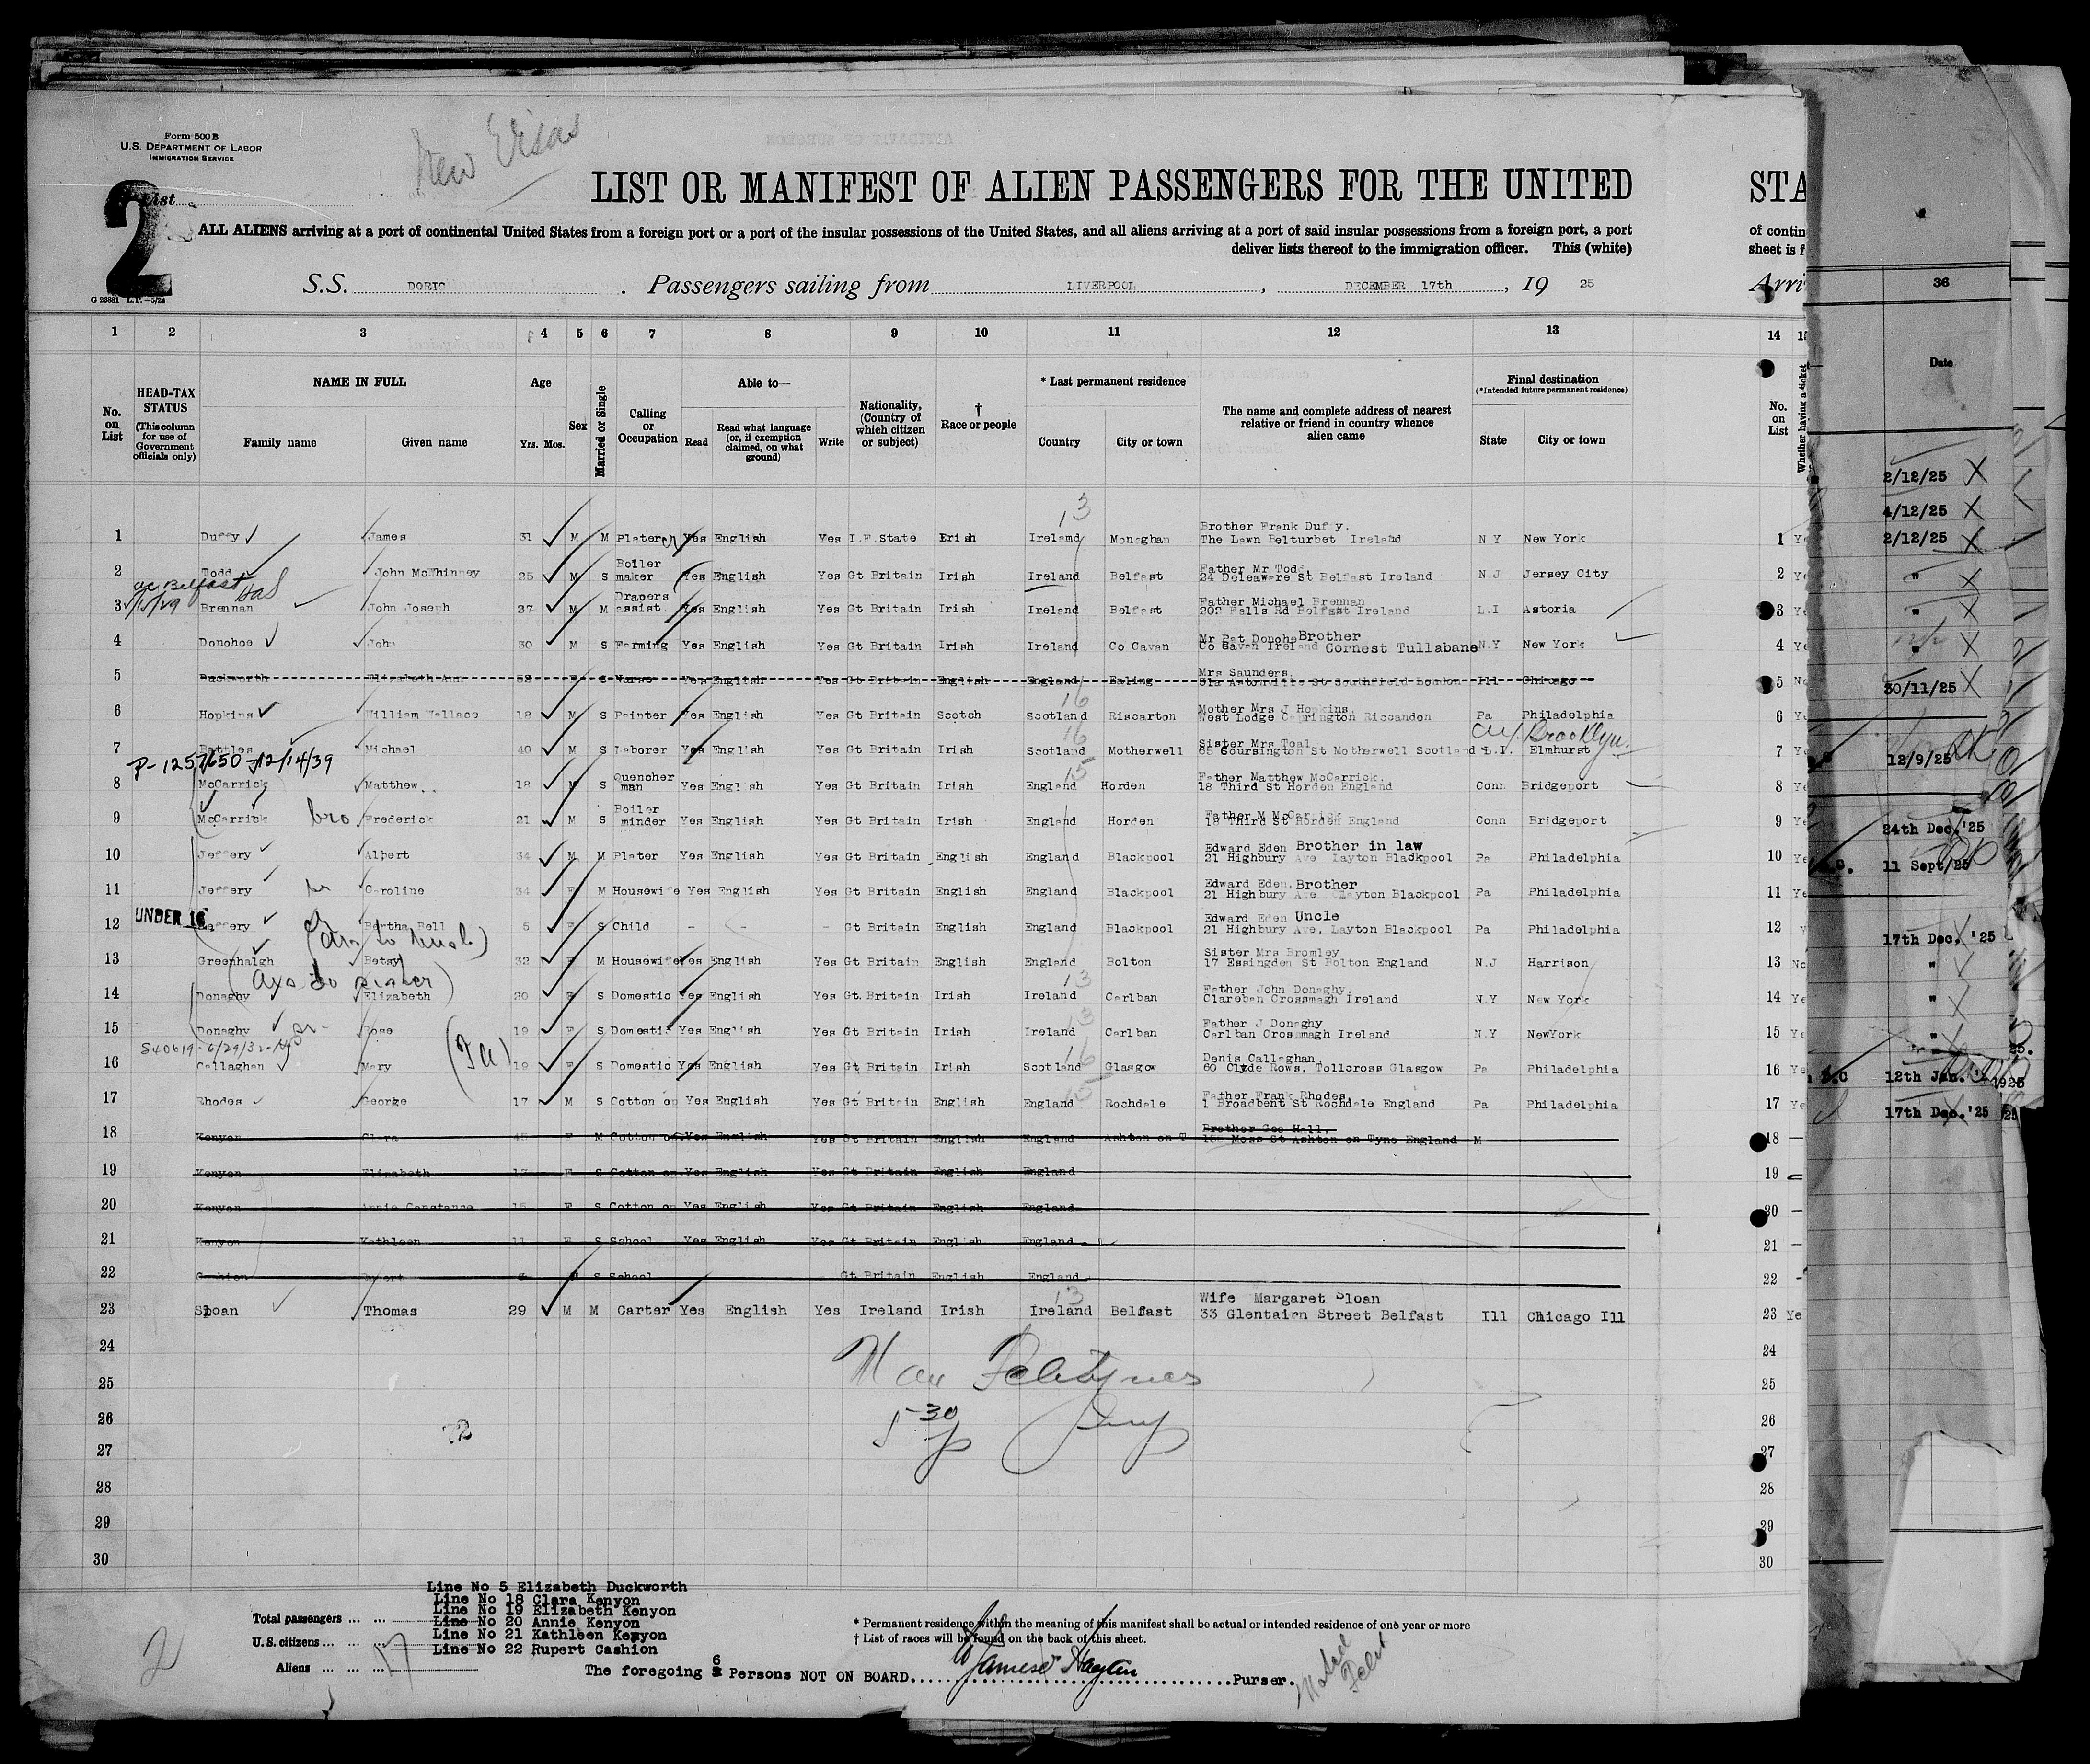 Form 500 B
U.S. DEPARTMENT OF LABOR
IMMIGRATION SERVICE
New Visas
2 List
LIST OR MANIFEST OF ALIEN PASSENGERS FOR THE UNITED STA
ALL ALIENS arriving at a port of continental United States from a foreign port or a port of the insular possessions of the United States, and all aliens arriving at a port of said insular possessions from a foreign port, a port of contin
deliver lists thereof to the immigration officer. This (white) sheet is f
S.S. DORIC . Passengers sailing from LIVERPOOL , DECEMBER 17th , 19 25 Arri
G 23881 L.P.—5/24
1 2 3 4 5 6 7 8 9 10 11 12 13 14 15 36
No. on List
HEAD-TAX STATUS (This column for use of Government officials only)
NAME IN FULL Family name Given name
Age Yrs. Mos.
Sex
Married or Single
Calling or Occupation
Able to— Read Read what language (or, if exemption claimed, on what ground) Write
Nationality, (Country of which citizen or subject)
† Race or people
* Last permanent residence Country City or town
The name and complete address of nearest relative or friend in country whence alien came
Final destination (*Intended future permanent residence) State City or town
No. on List
Whether having a ticket
Date
13
1 Duffy James 31 M M Plater Yes English Yes I.F.State Erish Ireland Monaghan Brother Frank Duffy. The Lawn Belturbet Ireland N Y New York 1
2 Todd John McWhinney 25 M S Boiler maker Yes English Yes Gt Britain Irish Ireland Belfast Father Mr Todd 24 Deleaware St Belfast Ireland N.J Jersey City 2
3 Brennan John Joseph 37 M M Drapers assist. Yes English Yes Gt Britain Irish Ireland Belfast Father Michael Brennan 202 Falls Rd Belfast Ireland L.I Astoria 3
4 Donohoe John 30 M S Farming Yes English Yes Gt Britain Irish Ireland Co Cavan Mr Pat Donoho Brother Co Cavan Ireland Cornest Tullabane N.Y New York 4
5 Duckworth Elizabeth Ann 52 F S Nurse Yes English Yes Gt Britain English England Ealing Mrs Saunders. St Southfield London Ill Chicago 5
16
6 Hopkins William Wallace 18 M S Painter Yes English Yes Gt Britain Scotch Scotland Riscarton Mother Mrs J Hopkins. West Lodge Caprington Riccandon Pa Philadelphia 6
16 Brooklyn
7 Battles Michael 40 M S Laborer Yes English Yes Gt Britain Irish Scotland Motherwell Sister Mrs Toal 65 Coursington St Motherwell Scotland L.I. Elmhurst 7
P-1257650-12/14/39
15
8 McCarrick Matthew 18 M S Quencher man Yes English Yes Gt Britain Irish England Horden Father Matthew McCarrick. 18 Third St Horden England Conn Bridgeport 8
9 McCarrick bro Frederick 21 M S Boiler minder Yes English Yes Gt Britain Irish England Horden Father M McCarrick 18 Third St Horden England Conn Bridgeport 9
10 Jeffery Albert 34 M M Plater Yes English Yes Gt Britain English England Blackpool Edward Eden Brother in law 21 Highbury Ave Layton Blackpool Pa Philadelphia 10
11 Jeffery Caroline 34 F M Housewife Yes English Yes Gt Britain English England Blackpool Edward Eden. Brother 21 Highbury Ave Layton Blackpool Pa Philadelphia 11
UNDER 16
12 Jeffery Bertha Bell 5 F S Child - - - Gt Britain English England Blackpool Edward Eden Uncle 21 Highbury Ave, Layton Blackpool Pa Philadelphia 12
13 Greenhalgh Betsy 32 F M Housewife Yes English Yes Gt Britain English England Bolton Sister Mrs Bromley 17 Essingden St Bolton England N.J Harrison 13
13
14 Donaghy Elizabeth 20 F S Domestic Yes English Yes Gt.Britain Irish Ireland Carlban Father John Donaghy. Clareban Crossmagh Ireland N.Y New York 14
15 Donaghy Rose 19 F S Domestic Yes English Yes Gt Britain Irish Ireland Carlban Father J Donaghy Carlban Crossmagh Ireland N.Y NewYork 15
16
16 Callaghan Mary 19 F S Domestic Yes English Yes Gt Britain Irish Scotland Glasgow Denis Callaghan 60 Clyde Rows, Tollcross Glasgow Pa Philadelphia 16
15
17 Rhodes George 17 M S Cotton op Yes English Yes Gt Britain English England Rochdale Father Frank Rhodes. 1 Broadbent St Rochdale England Pa Philadelphia 17
18 Kenyon Clara 45 F M Cotton op Yes English Yes Gt Britain English England Ashton on T Brother Geo Hall. Moss St Ashton on Tyne England M 18
19 Kenyon Elizabeth 17 F S Cotton op Yes English Yes Gt Britain English England 19
20 Kenyon Annie Constance 15 F S Cotton op Yes English Yes Gt Britain English England 20
21 Kenyon Kathleen 11 F S School Yes English Yes Gt Britain English England 21
22 Cashion Rupert S School Gt Britain English England 22
13
23 Sloan Thomas 29 M M Carter Yes English Yes Ireland Irish Ireland Belfast Wife Margaret Sloan 33 Glentairn Street Belfast Ill Chicago Ill 23 Ye
24 24
25 25
26 26
27 27
28 28
29 29
30 30
5 30
Line No 5 Elizabeth Duckworth
Line No 18 Clara Kenyon
Line No 19 Elizabeth Kenyon
Line No 20 Annie Kenyon
Line No 21 Kathleen Kenyon
Line No 22 Rupert Cashion
Total passengers ... ...
U.S. citizens ... ... ...
Aliens ... ... ... 17
* Permanent residence within the meaning of this manifest shall be actual or intended residence of one year or more
† List of races will be found on the back of this sheet.
The foregoing 6 Persons NOT ON BOARD. Purser.
2
2/12/25 X
4/12/25 X
2/12/25 X
" X
" X
" X
30/11/25 X
12/9/25
24th Dec.'25
11 Sept/25
17th Dec. '25
"
"
"
12th Jan. 1925
17th Dec.'25